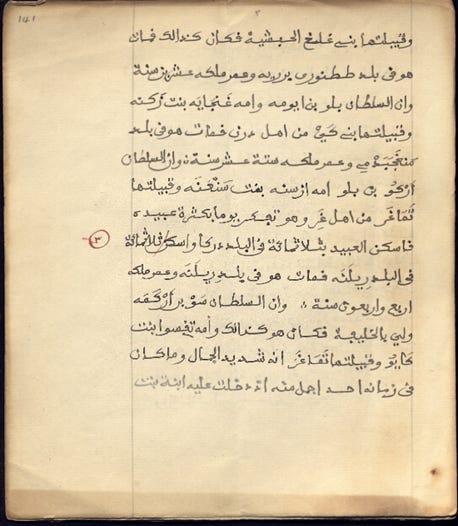 141
٢
وقبيلتها بنى غلمغ الحبشية فكان كذالك فمات
هو فى بلد ططنورى بربريه وعمر ملكه عشرين سنة
وان السلطان بلو بن ايومه وامه غنجايه بنت زكنه
وقبيلتها بنى كَيْ من اهل درنى فمات هو فى بلد
وعمر ملكه ستة عشر سنة وان السلطان
اركو بن بلو امه ازسنه بنت سنغنه وقبيلتها
تَغَاغَر من اهل غر وهو تفكر يوما بكثرة عبيده
فاسكن العبيد بثلاثمائة فى البلد دركا واسكن ثلاثمائة
٣
فى البلد زيلنَه فمات هو فى بلد زيلنَه وعمر ملكه
اربع واربعون سنة وان السلطان شو بن اركمه
ولي بالخليفة فكان هو كذالك وامه تفسوا بنت
وقبيلتها تَغَاغَر انه شديد الجمال وما كان
فى زمانه احد اجمل منه اذ دخلت عليه ابنة بنت